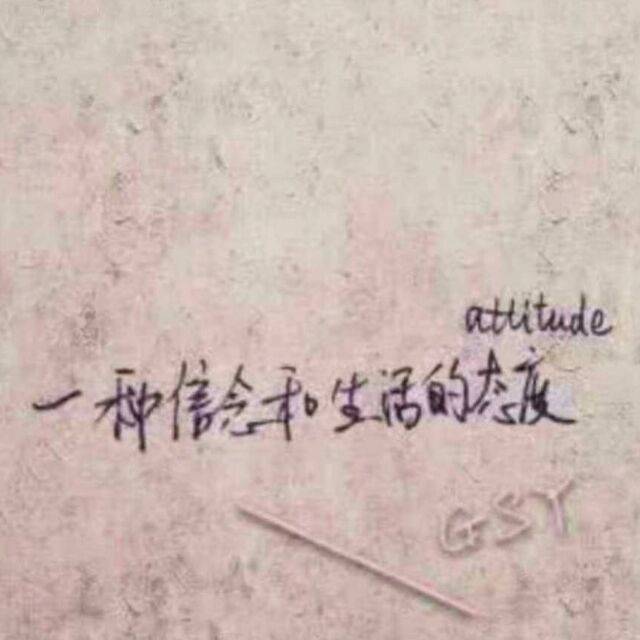 attitude
一种信念和生活的态度
GSY